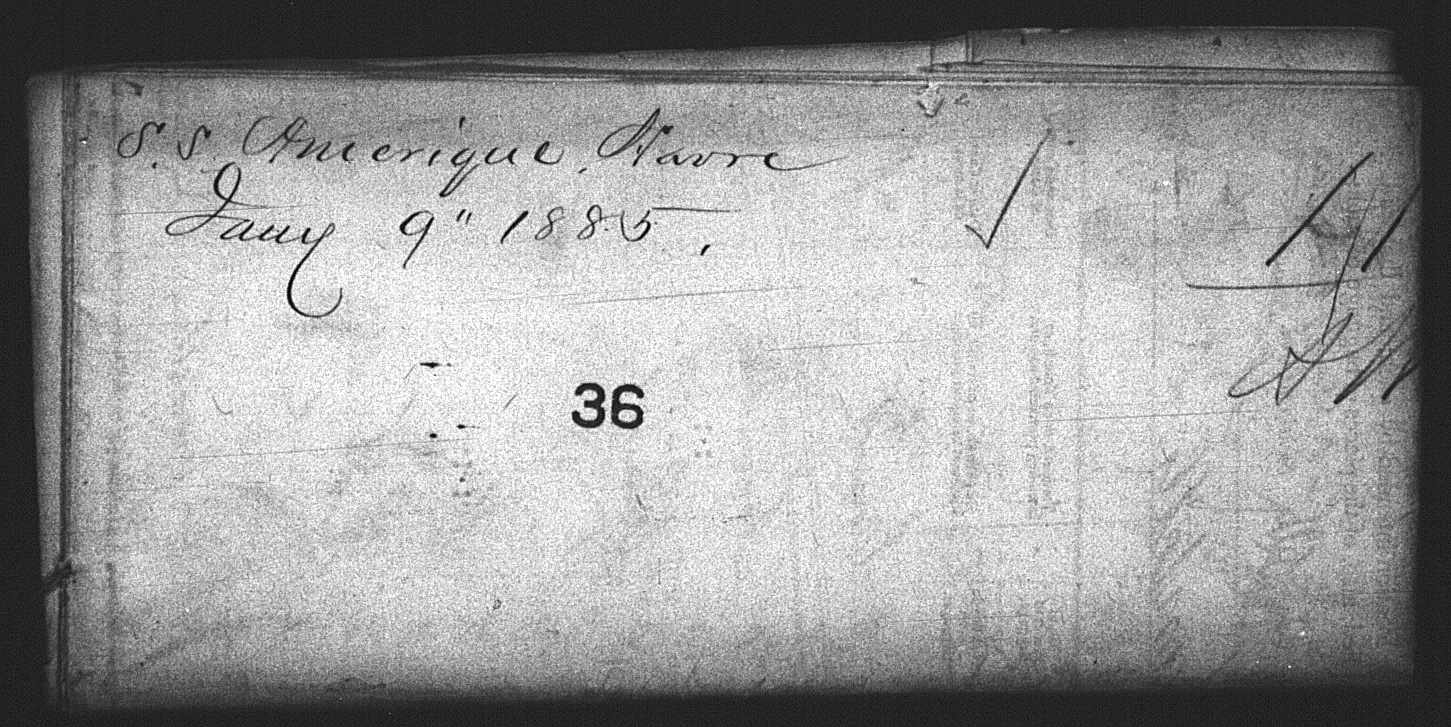 S. S. Amerique, Havre
Jany 9" 1885.
36